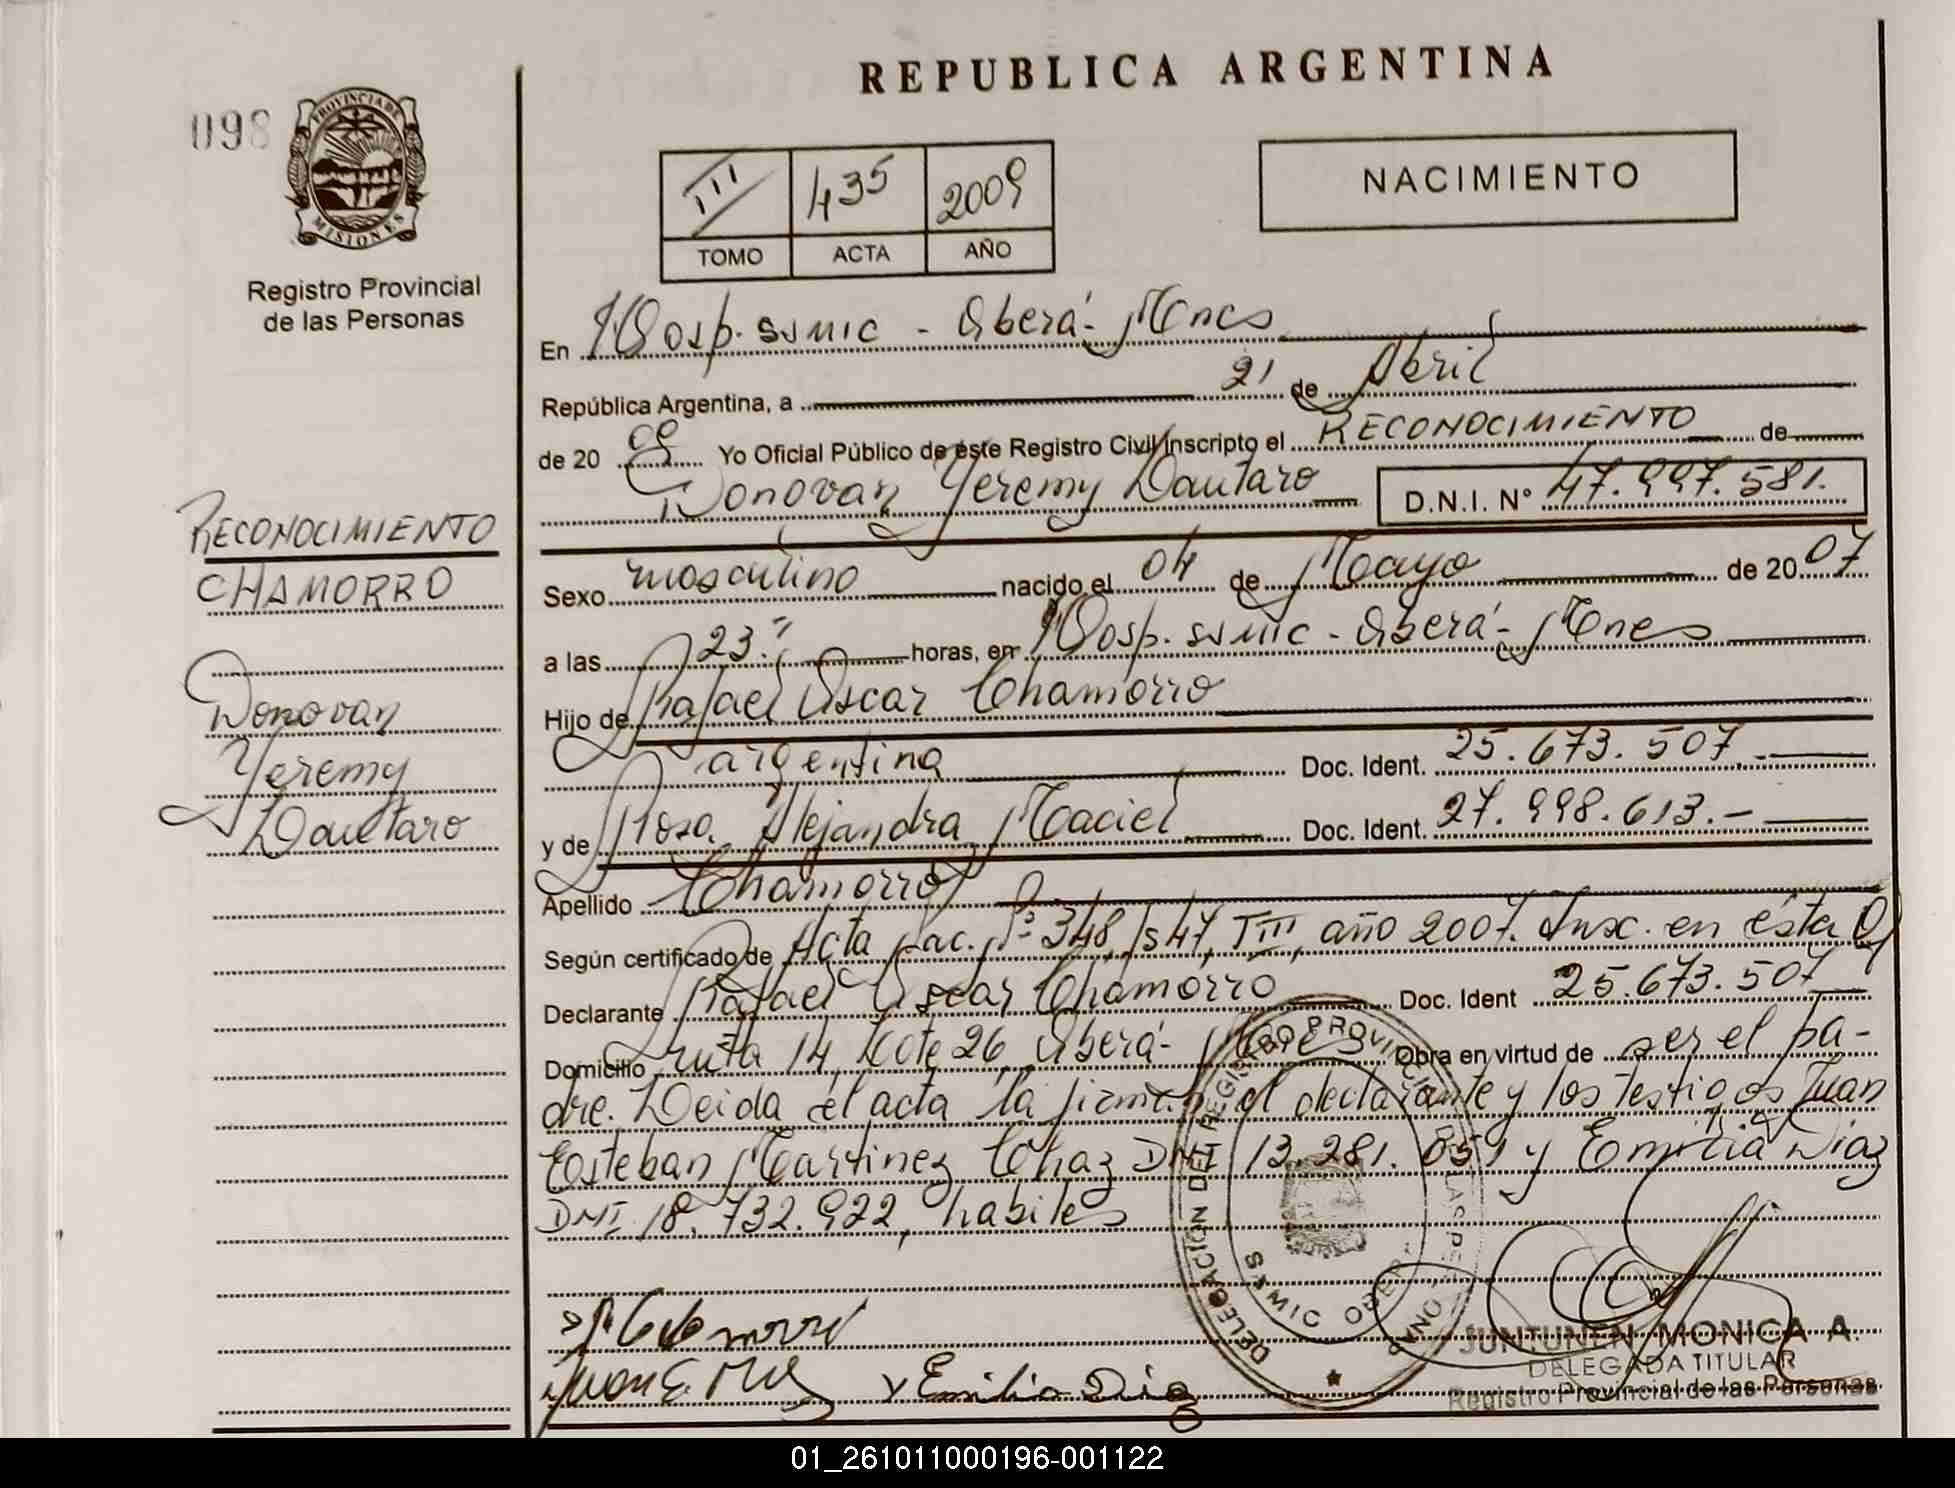 REPUBLICA ARGENTINA
098
PROVINCIA DE
MISIONES
Registro Provincial
de las Personas
III 435 2009
TOMO ACTA AÑO
NACIMIENTO
En Hosp. SSMIC - Oberá - Mnes
República Argentina, a 21 de Abril
de 20 09 Yo Oficial Público de este Registro Civil inscripto el RECONOCIMIENTO de
Donovan Yeremy Lautaro D.N.I. N° 47.997.581.
RECONOCIMIENTO
CHAMORRO
Donovan
Yeremy
Lautaro
Sexo masculino nacido el 04 de Mayo de 20 07
a las 23:" horas, en Hosp. SSMIC - Oberá - Mnes
Hijo de Rafael Oscar Chamorro
argentina Doc. Ident. 25.673.507.-
y de Rosa Alejandra Maciel Doc. Ident. 27.998.613.-
Apellido Chamorro
Según certificado de Acta Nac. N° 348, Fs 47, TIII, año 2007. Insc. en ésta Of
Declarante Rafael Oscar Chamorro Doc. Ident 25.673.507
Domicilio ruta 14, Lote 26, Oberá - Obra en virtud de ser el pa-
dre. Leida el acta la firman el declarante y los testigos Juan
Esteban Martinez Chaz DNI 13.281.059 y Emilia Diaz
DNI 18.732.922, habiles
DELEGACION DEL REGISTRO PROVINCIAL DE LAS PERSONAS
SAMIC OBERA
Emilia Diaz
JUNTUNEN MONICA A.
DELEGADA TITULAR
Registro Provincial de las Personas
01_261011000196-001122